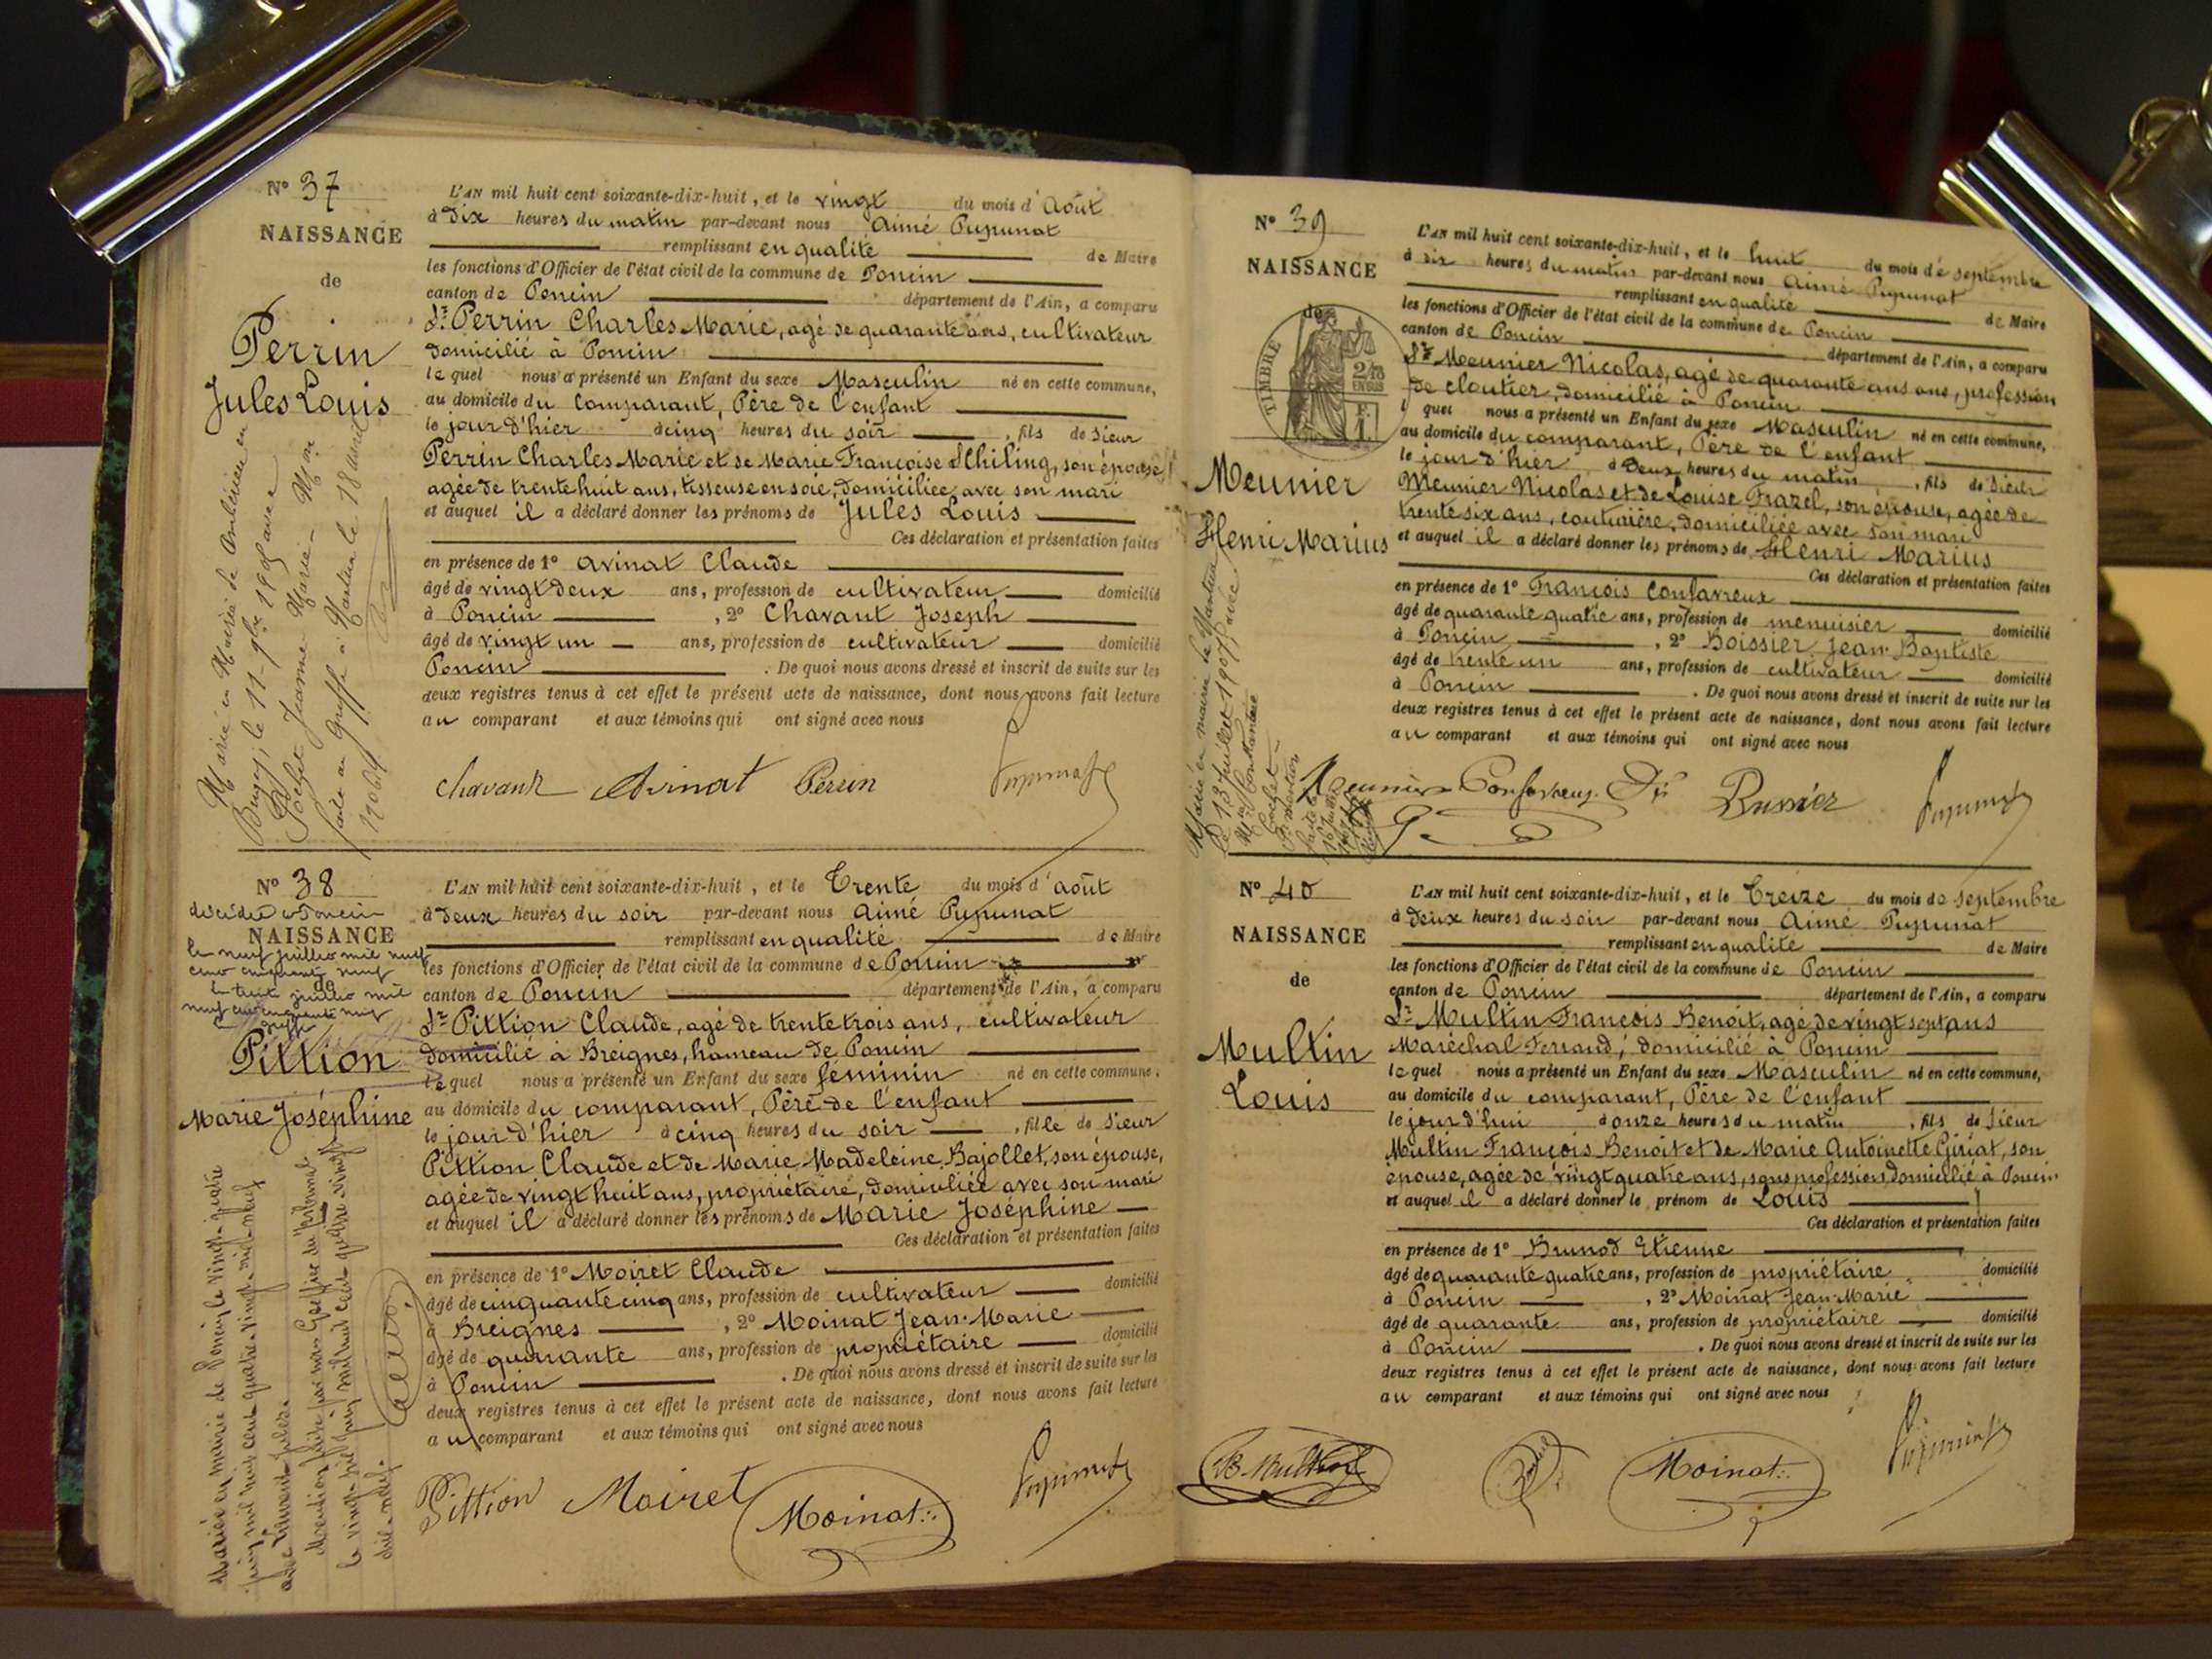 N° 37
NAISSANCE
de
Perrin
Jules Louis
L'AN mil huit cent soixante-dix-huit, et le vingt du mois d'août
à dix heures du matin par-devant nous Aimé Pupunat
remplissant en qualité de Maire
les fonctions d'Officier de l'état civil de la commune de Poncin
canton de Poncin département de l'Ain, a comparu
Sr Perrin Charles Marie, agé de quarante ans, cultivateur
domicilié à Poncin
lequel nous a présenté un Enfant du sexe Masculin né en cette commune,
au domicile du comparant, Père de l'enfant
le jour d'hier à cinq heures du soir, fils de Sieur
Perrin Charles Marie et de Marie Françoise Schiling, son épouse,
agée de trente huit ans, tisseuse en soie, domiciliée avec son mari
et auquel il a déclaré donner les prénoms de Jules Louis
Ces déclaration et présentation faites
en présence de 1° Avinat Claude
âgé de vingt deux ans, profession de cultivateur domicilié
à Poncin, 2° Chavant Joseph
âgé de vingt un ans, profession de cultivateur domicilié
Poncin. De quoi nous avons dressé et inscrit de suite sur les
deux registres tenus à cet effet le présent acte de naissance, dont nous avons fait lecture
au comparant et aux témoins qui ont signé avec nous
Chavant Avinat Perrin Pupunat
Marié en Mairie de Ambérieu en
Bugey le 11 9bre 1905 avec
Jeanne Marie
faite au Greffe à Nantua le 18 avril
1906
N° 38
NAISSANCE
de
décédée à Poncin
le neuf juillet mil neuf
cent cinquante neuf
le huit juillet mil
neuf cent cinquante neuf
Pittion
Marie Joséphine
L'AN mil huit cent soixante-dix-huit, et le Trente du mois d'août
à deux heures du soir par-devant nous Aimé Pupunat
remplissant en qualité de Maire
les fonctions d'Officier de l'état civil de la commune de Poncin
canton de Poncin département de l'Ain, a comparu
Sr Pittion Claude, agé de trente trois ans, cultivateur
domicilié à Breignes, hameau de Poncin
lequel nous a présenté un Enfant du sexe féminin né en cette commune,
au domicile du comparant, Père de l'enfant
le jour d'hier à cinq heures du soir, fille de Sieur
Pittion Claude et de Marie Madeleine Bajollet, son épouse,
agée de vingt huit ans, propriétaire, domiciliée avec son mari
et auquel il a déclaré donner les prénoms de Marie Joséphine
Ces déclaration et présentation faites
en présence de 1° Moiret Claude
âgé de cinquante cinq ans, profession de cultivateur domicilié
à Breignes, 2° Moinat Jean-Marie
âgé de quarante ans, profession de propriétaire domicilié
à Poncin. De quoi nous avons dressé et inscrit de suite sur les
deux registres tenus à cet effet le présent acte de naissance, dont nous avons fait lecture
au comparant et aux témoins qui ont signé avec nous
Pittion Moiret Moinat Pupunat
Mariée en mairie de Poncin, le vingt-quatre
juin mil huit cent quatre-vingt-dix-neuf
avec
Mention faite par nous Greffier du Tribunal
le vingt-six juin mil huit cent quatre vingt
dix-neuf.
N° 39
NAISSANCE
de
TIMBRE
2/10
EN SUS
Meunier
Henri Marius
L'AN mil huit cent soixante-dix-huit, et le huit du mois de septembre
à dix heures du matin par-devant nous Aimé Pupunat
remplissant en qualité de Maire
les fonctions d'Officier de l'état civil de la commune de Poncin
canton de Poncin département de l'Ain, a comparu
Sr Meunier Nicolas, agé de quarante ans ans, profession
de cloutier, domicilié à Poncin
quel nous a présenté un Enfant du sexe Masculin né en cette commune,
au domicile du comparant, Père de l'enfant
le jour d'hier à deux heures du matin, fils de Sieur
Meunier Nicolas et de Louise Frazel, son épouse, agée de
trente six ans, couturière, domiciliée avec son mari
et auquel il a déclaré donner les prénoms de Henri Marius
Ces déclaration et présentation faites
en présence de 1° François Confavreux
âgé de quarante quatre ans, profession de menuisier domicilié
à Poncin, 2° Boissier Jean-Baptiste
âgé de trente un ans, profession de cultivateur domicilié
à Poncin. De quoi nous avons dressé et inscrit de suite sur les
deux registres tenus à cet effet le présent acte de naissance, dont nous avons fait lecture
au comparant et aux témoins qui ont signé avec nous
Meunier Confavreux Bussier Pupunat
Marié en mairie de Nantua
le 13 Juillet 1907 avec
N° 40
NAISSANCE
de
Multin
Louis
L'AN mil huit cent soixante-dix-huit, et le Treize du mois de septembre
à deux heures du soir par-devant nous Aimé Pupunat
remplissant en qualité de Maire
les fonctions d'Officier de l'état civil de la commune de Poncin
canton de Poncin département de l'Ain, a comparu
Sr Multin François Benoit, agé de vingt sept ans
Maréchal Ferrand, domicilié à Poncin
lequel nous a présenté un Enfant du sexe Masculin né en cette commune,
au domicile du comparant, Père de l'enfant
le jour d'hui à onze heures du matin, fils de Sieur
Multin François Benoit et de Marie Antoinette Giriat, son
épouse, agée de vingt quatre ans, sans profession, domicilié à Poncin
et auquel il a déclaré donner le prénom de Louis
Ces déclaration et présentation faites
en présence de 1° Brunod Etienne
âgé de quarante quatre ans, profession de propriétaire domicilié
à Poncin, 2° Moinat Jean-Marie
âgé de quarante ans, profession de propriétaire domicilié
à Poncin. De quoi nous avons dressé et inscrit de suite sur les
deux registres tenus à cet effet le présent acte de naissance, dont nous avons fait lecture
au comparant et aux témoins qui ont signé avec nous
B. Multin Moinat Pupunat